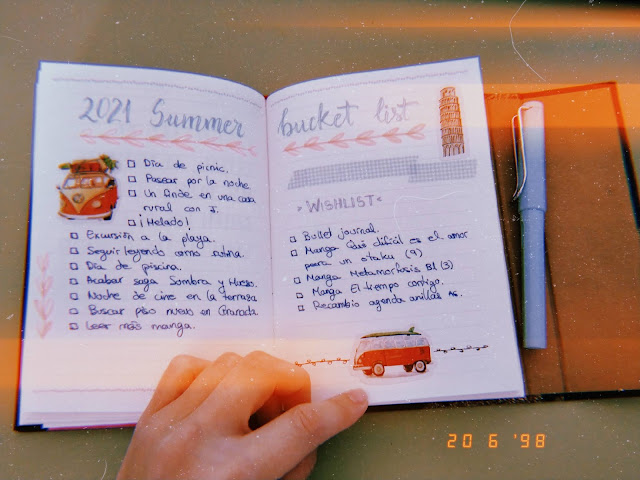 2021 Summer
□ Día de picnic.
□ Pasear por la noche
□ Un finde en una casa
rural con J.
□ ¡Helado!
□ Excursión a la playa.
□ Seguir leyendo como rutina.
□ Día de piscina.
□ Acabar saga Sombra y Hueso.
□ Noche de cine en la terraza
□ Buscar piso nuevo en Granada.
□ Leer más manga.
bucket list
> WISHLIST <
□ Bullet journal.
□ Manga Qué difícil es el amor
para un otaku (9)
□ Manga Metamorfosis BL (3)
□ Manga El tiempo contigo.
□ Recambio agenda anillas A5.
20 6 '98